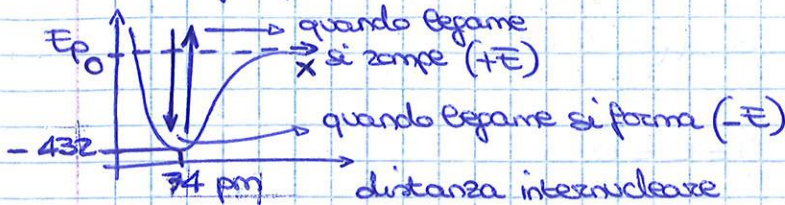 quando legame
Ep
0
x si rompe (+E)
quando legame si forma (-E)
- 432
74 pm
distanza internucleare